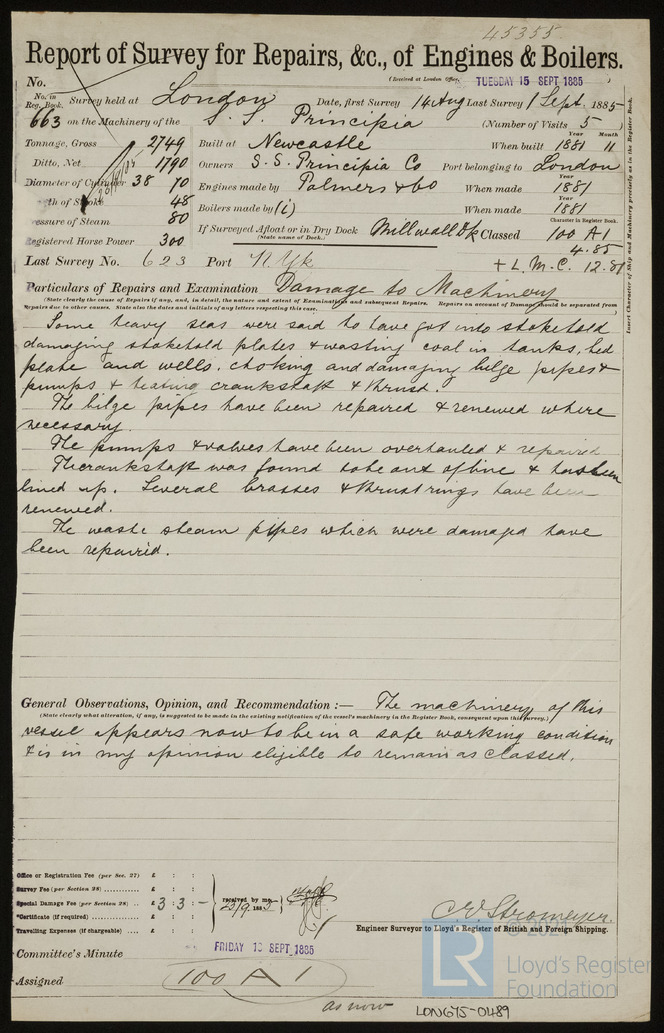 45355
Report of Survey for Repairs, &c., of Engines & Boilers.
No.
(Received at London Office, TUESDAY 15 SEPT 1885)
No. in Reg. Book. Survey held at London Date, first Survey 14 Aug Last Survey 1 Sept. 1885
663 on the Machinery of the S. S. Principia (Number of Visits 5)
Tonnage, Gross 2749 Built at Newcastle When built 1881 Year 11 Month
Ditto, Net 1790 Owners S. S. Principia Co Port belonging to London
Diameter of Cylinder 38 70 Engines made by Palmers & Co When made 1881
Length of Stroke 48 Boilers made by (i) When made 1881
Pressure of Steam 80 If Surveyed Afloat or in Dry Dock Millwall Dk Classed 100 A1
(State name of Dock.) Character in Register Book.
4.85
Registered Horse Power 300
Last Survey No. 623 Port N Yk + L. M. C. 12.81
Particulars of Repairs and Examination Damage to Machinery
(State clearly the cause of Repairs if any, and, in detail, the nature and extent of Examination and subsequent Repairs. Repairs on account of Damage should be separated from
Repairs due to other causes. State also the dates and initials of any letters respecting this case.
Some heavy seas were said to have got into stokehold
damaging stokehold plates & washing coal in tanks, bed
plate and wells, choking and damaging bilge pipes &
pumps & heating crankshaft & thrust.
The bilge pipes have been repaired & renewed where
necessary.
The pumps & valves have been overhauled & repaired
The crankshaft was found to be out of line & has been
lined up. Several brasses & thrust rings have been
renewed.
The waste steam pipes which were damaged have
been repaired.
General Observations, Opinion, and Recommendation :— The machinery of this
(State clearly what alteration, if any, is suggested to be made in the existing notification of the vessel's machinery in the Register Book, consequent upon this survey.)
vessel appears now to be in a safe working condition
& is in my opinion eligible to remain as classed.
Office or Registration Fee (per Sec. 27) £ : :
Survey Fee (per Section 28) £ : :
Special Damage Fee (per Section 28) £ 3 : 3 : — received by me, 25/9. 1885
*Certificate (if required) £ : :
Travelling Expenses (if chargeable) £ : :
C E Stromeyer.
Engineer Surveyor to Lloyd's Register of British and Foreign Shipping.
Committee's Minute FRIDAY 18 SEPT 1885
Assigned 100 A 1
as now
LON675-0489
Insert Character of Ship and Machinery precisely as in the Register Book.
LR
Lloyd's Register
Foundation